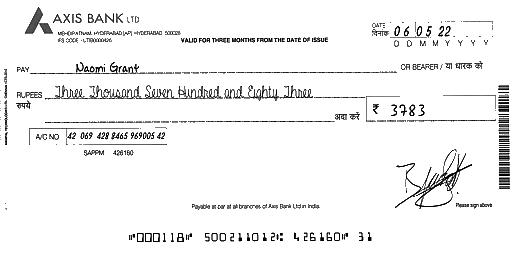 AXIS BANK LTD
MEHDIPATNAM, HYDERABAD [AP] HYDERABAD 500028
IFS CODE - UTIB0000426
VALID FOR THREE MONTHS FROM THE DATE OF ISSUE
DATE
दिनांक 06 05 22
D D M M Y Y Y Y
PAY Naomi Grant OR BEARER / या धारक को
RUPEES Three Thousand Seven Hundred and Eighty Three
रुपये अदा करें ₹ 3783
A/C NO 42 069 428 8465 969005 42
SAPPM 426160
Payable at par at all branches of Axis Bank Ltd in India.
Please sign above
⑈000118⑈ 500211012⑆ 426160⑈ 31